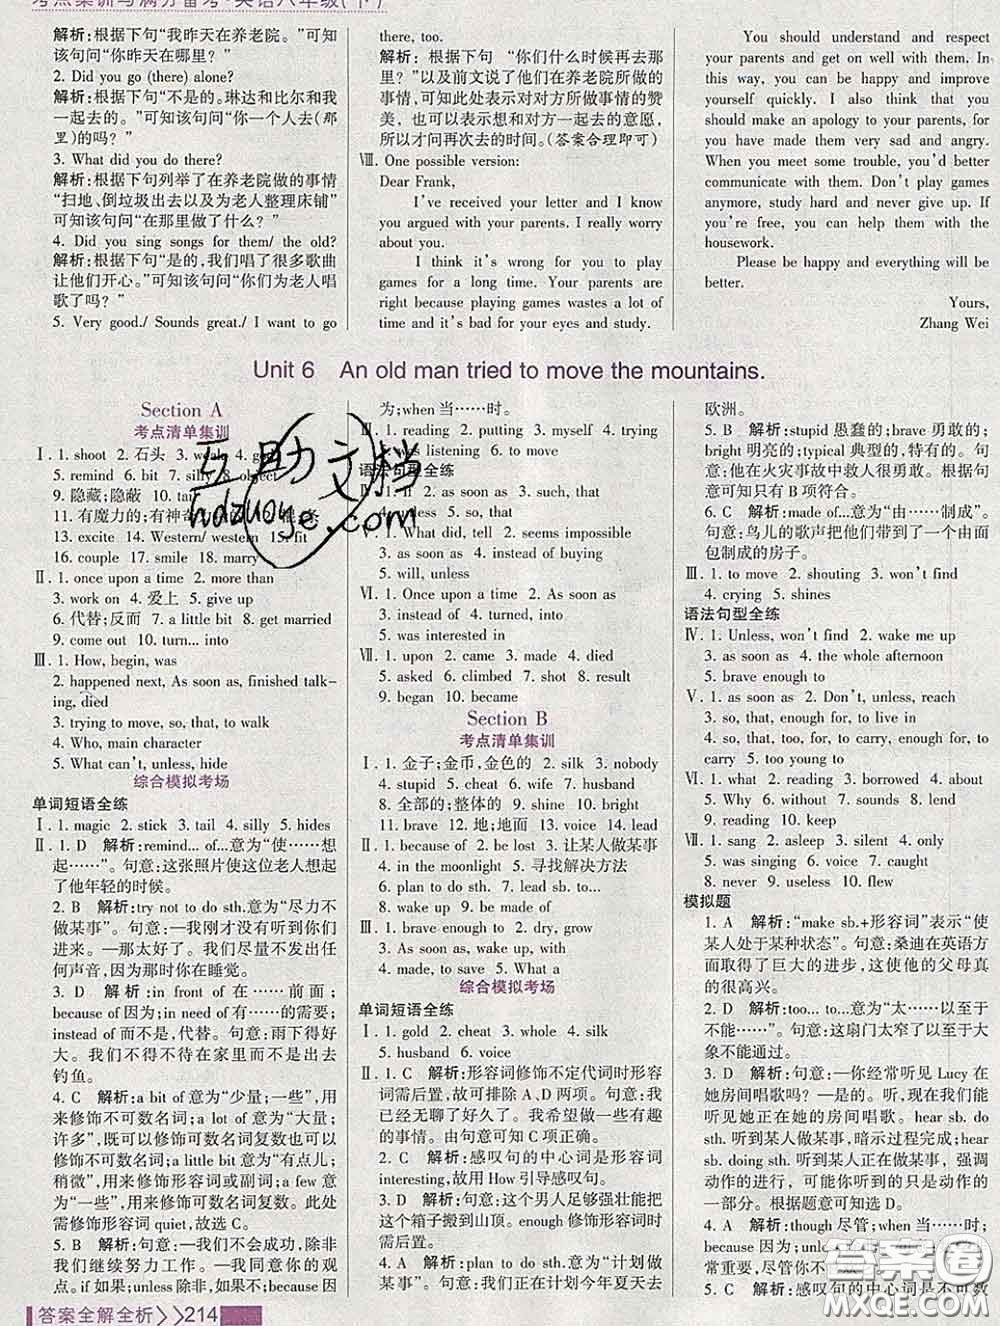 考点集训与满分备考·英语八年级(下)
解析:根据下句“我昨天在养老院。”可知
该句问“你昨天在哪里？”
2. Did you go (there) alone?
解析:根据下句“不是的。琳达和比尔和我
一起去的。”可知该句问“你一个人去(那
里)的吗？”
3. What did you do there?
解析:根据下句列举了在养老院做的事情
“扫地、倒垃圾出去以及为老人整理床铺”
可知该句问“在那里做了什么？”
4. Did you sing songs for them/ the old?
解析:根据下句“是的,我们唱了很多歌曲
让他们开心。”可知该句问“你们为老人唱
歌了吗？”
5. Very good./ Sounds great./ I want to go
there, too.
解析:根据下句“你们什么时候再去那
里？”以及前文说了他们在养老院所做的
事情,可知此处表示对对方所做事情的赞
美,也可以表示想和对方一起去的意愿,
所以才问再次去的时间。(答案合理即可)
Ⅷ. One possible version:
Dear Frank,
I've received your letter and I know
you argued with your parents. I really worry
about you.
I think it's wrong for you to play
games for a long time. Your parents are
right because playing games wastes a lot of
time and it's bad for your eyes and study.
You should understand and respect
your parents and get on well with them. In
this way, you can be happy and improve
yourself quickly. I also think that you
should make an apology to your parents, for
they may have been very sad and angry.
When you meet some trouble, you'd better
communicate with them. Don't play games
anymore, study hard and never give up. If
you're free, you can help them with the
housework.
Please be happy and everything will be
better.
Yours,
Zhang Wei
Unit 6 An old man tried to move the mountains.
Section A
考点清单集训
Ⅰ. 1. shoot 2. 石头 3. weak 4. god
5. remind 6. bit 7. silly 8. object
9. 隐藏;隐蔽 10. tail
11. 有魔力的;有神奇
13. excite 14. Western/ western 15. fit
16. couple 17. smile 18. marry
Ⅱ. 1. once upon a time 2. more than
3. work on 4. 爱上 5. give up
6. 代替;反而 7. a little bit 8. get married
9. come out 10. turn... into
Ⅲ. 1. How, begin, was
2. happened next, As soon as, finished talk-
ing, died
3. trying to move, so, that, to walk
4. Who, main character
5. What can't, unless, hide
综合模拟考场
单词短语全练
Ⅰ. 1. magic 2. stick 3. tail 4. silly 5. hides
Ⅱ. 1. D 解析:remind... of...意为“使……想
起……”。句意:这张照片使这位老人想起
了他年轻的时候。
2. B 解析:try not to do sth.意为“尽力不
做某事”。句意:—我刚才没有听到你们
进来。—那太好了。我们尽量不发出任
何声音,因为那时你在睡觉。
3. D 解析:in front of 在……前面;
because of因为;in need of有……的需要;
instead of而不是,代替。句意:雨下得好
大。我们不得不待在家里而不是出去
钓鱼。
4. C 解析:a bit of意为“少量;一些”,用
来修饰不可数名词;a lot of意为“大量;
许多”,既可以修饰可数名词复数也可以
修饰不可数名词;a little bit意为“有点儿;
稍微”,用来修饰形容词或副词;a few意
为“一些”,用来修饰可数名词复数。此处
需修饰形容词quiet,故选C。
5. B 解析:句意:—我们不会成功,除非
我们继续努力工作。—我同意你的观
点。if如果;unless除非,如果不;because因
为;when当……时。
Ⅲ. 1. reading 2. putting 3. myself 4. trying
5. was listening 6. to move
语法句型全练
Ⅳ. 1. If 2. as soon as 3. such, that
4. unless 5. so, that
Ⅴ. 1. What did, tell 2. seems impossible
3. as soon as 4. instead of buying
5. will, unless
Ⅵ. 1. Once upon a time 2. As soon as
3. instead of 4. turned, into
5. was interested in
Ⅶ. 1. upon 2. came 3. made 4. died
5. asked 6. climbed 7. stop 8. to send
9. began 10. became
Section B
考点清单集训
Ⅰ. 1. 金子;金币,金色的 2. silk 3. nobody
4. stupid 5. cheat 6. wife 7. husband
8. 全部的;整体的 9. shine 10. bright
11. brave 12. 地;地面 13. voice 14. lead
Ⅱ. 1. because of 2. be lost 3. 让某人做某事
4. in the moonlight 5. 寻找解决方法
6. plan to do sth. 7. lead sb. to...
8. wake up 9. be made of
Ⅲ. 1. brave enough to 2. dry, grow
3. As soon as, wake up, with
4. made, to save 5. What a
综合模拟考场
单词短语全练
Ⅰ. 1. gold 2. cheat 3. whole 4. silk
5. husband 6. voice
Ⅱ. 1. C 解析:形容词修饰不定代词时形容
词需后置,故可排除A、D两项。句意:我
已经无聊了好久了。我希望做一些有趣
的事情。由句意可知C项正确。
2. C 解析:感叹句的中心词是形容词
interesting,故用How引导感叹句。
3. D 解析:句意:这个男人足够强壮能把
这个箱子搬到山顶。enough修饰形容词时
需后置。
4. A 解析:plan to do sth.意为“计划做
某事”。句意:我们正在计划今年夏天去
欧洲。
5. B 解析:stupid愚蠢的;brave勇敢的;
bright明亮的;typical典型的,特有的。句
意:他在火灾事故中救人很勇敢。根据句
意可知只有B项符合。
6. C 解析:made of...意为“由……制成”。
句意:鸟儿的歌声把他们带到了一个由面
包制成的房子。
Ⅲ. 1. to move 2. shouting 3. won't find
4. crying 5. shines
语法句型全练
Ⅳ. 1. Unless, won't find 2. wake me up
3. as soon as 4. the whole afternoon
5. brave enough to
Ⅴ. 1. as soon as 2. Don't, unless, reach
3. so, that, enough for, to live in
4. so, that, too, for, to carry, enough, to
carry 5. too young to
Ⅵ. 1. what 2. reading 3. borrowed 4. about
5. Why 6. finished 7. sounds 8. lend
9. reading 10. keep
Ⅶ. 1. sang 2. asleep 3. silent 4. only
5. was singing 6. voice 7. caught
8. never 9. useless 10. flew
模拟题
1. A 解析:“make sb.+形容词”表示“使
某人处于某种状态”。句意:桑迪在英语方
面取得了巨大的进步,这使他的父母真
的很高兴。
2. D 解析:too... to...意为“太……以至于
不能……”。句意:这扇门太窄了以至于
大象不能通过。
3. D 解析:句意:—你经常听见Lucy在
她房间唱歌吗？—是的。听,现在我们能
听见她正在她的房间唱歌。hear sb. do
sth. 听到某人做某事,暗示过程完成;hear
sb. doing sth. 听到某人正在做某事,强调
动作的进行,可能你听到的只是动作的
一部分。根据题意可知选D。
4. A 解析:though尽管;when当……时;
because因为;
常重要,尽管你不
5. C 解析:感叹句的中心词是不可数
答案全解全析>>214
互助文档
hdzuoye.com
答案圈
MXQE.COM